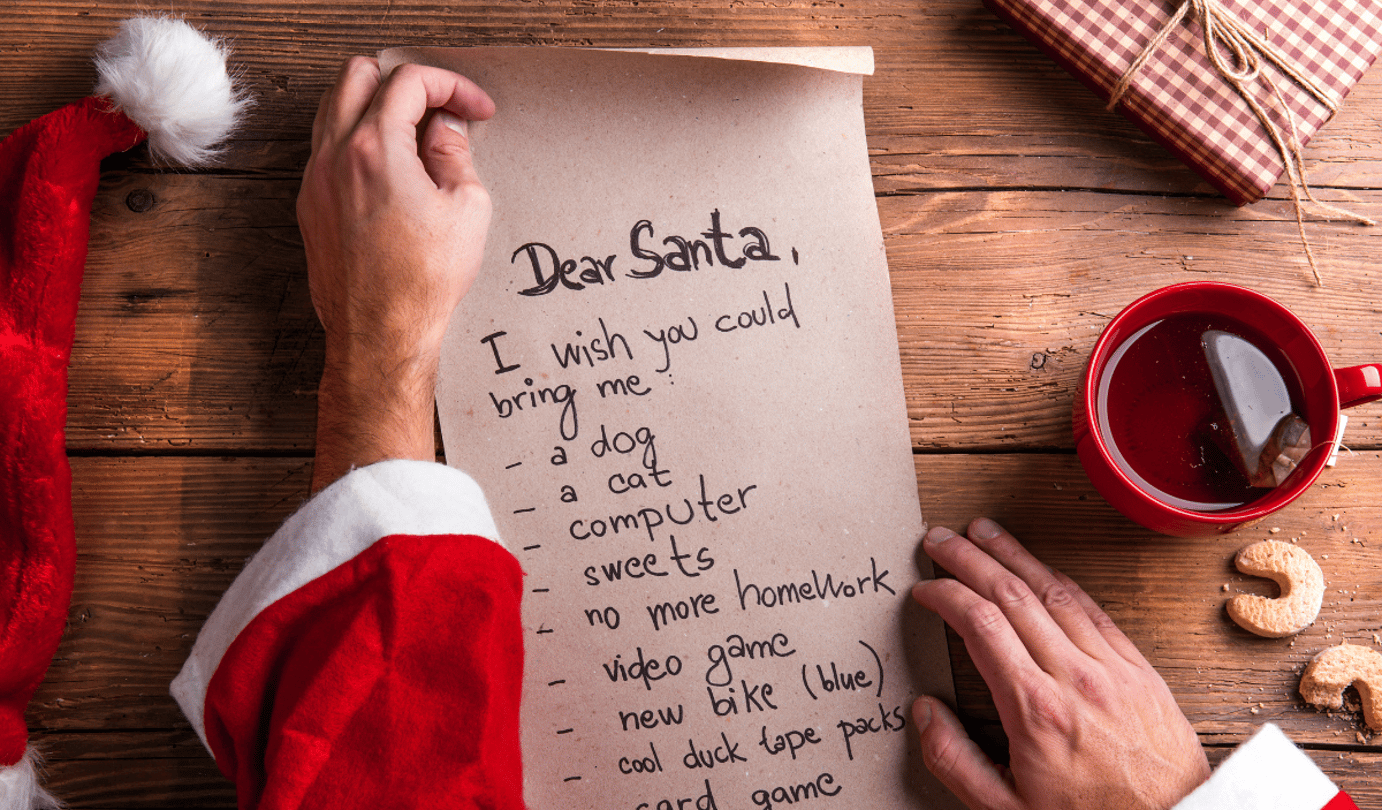 Dear Santa,
I wish you could
bring me:
- a dog
- a cat
- computer
- sweets
- no more homework
- video game
- new bike (blue)
- cool duck tape packs
card game